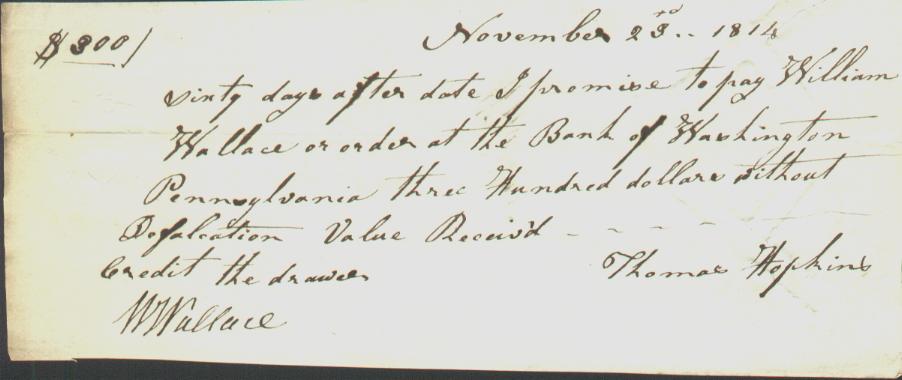 $300/ November 23rd .. 1814
sixty days after date I promise to pay William
Wallace or order at the Bank of Washington
Pennsylvania three Hundred dollars without
Defalcation Value Receiv'd
Credit the drawer Thomas Hopkins
WWallace